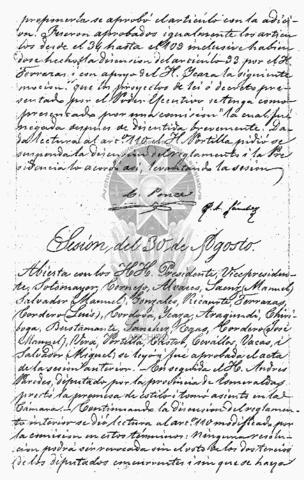 proponerla se aprobó el artículo con la adicion
. Fueron aprobados igualmente los artículos
desde el 36 hasta el 109 inclusive habiendose
hecho la discusion del artículo 93 por el H.
Terrazas i con apoyo del H. Icaza la siguiente
mocion "que los proyectos de lei ó decreto presentado
por el Poder Ejecutivo se tenga como
presentado por una comision" la cual fué
negada despues de discutida brevemente. Dada
lectura al art.º 110 el H. Portilla pidió se
suspenda la discusion del reglamento i la Presidencia
lo acordó así, levantando la sesion
Sesión del 30 de Agosto.
Abierta con los H.H. Presidente, Vicepresidente,
Sotomayor, Cornejo, Alvares, Saenz, Manuel
Salvador (Manuel), Gonzales, Ricaurte, Terrazas,
Cordero (Luis), Cordova, Icaza, Aragundi, Chiriboga,
Bustamante, Sanchez, Egas, Cordero (José
Manuel), Vera, Portilla, Cevallos, Vacas, i
Salvador (Miguel), se leyó i fué aprobada el acta
de la sesion anterior. En seguida el H. Andres
diputado por la provincia de Esmeraldas
prestó la promesa de estilo i tomó asiento en la
Cámara. Continuando la discusion del reglamento
interior se dió lectura al art.º 110 modificado por
la comision en estos términos: Ninguna resolucion
podrá ser revocada sin el voto de los dos tercios
de los diputados concurrentes i sin que se haya